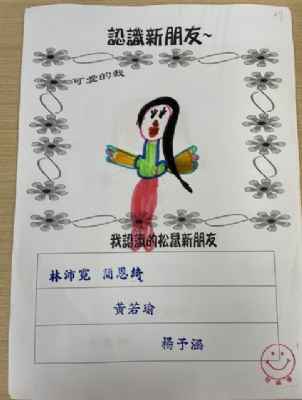 認識新朋友~
可愛的我
我認識的松鼠新朋友
林沛寬 簡恩綺
黃若瑜
楊予涵